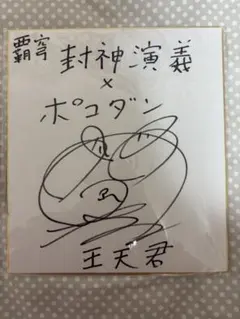 覇穹 封神演義
×
ポコダン
王天君